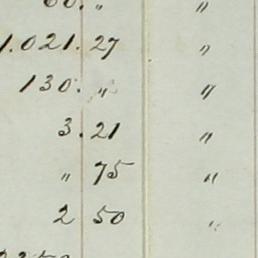 60. " "
1.021. 27 "
130. " "
3. 21 "
" 75 "
2 50 "